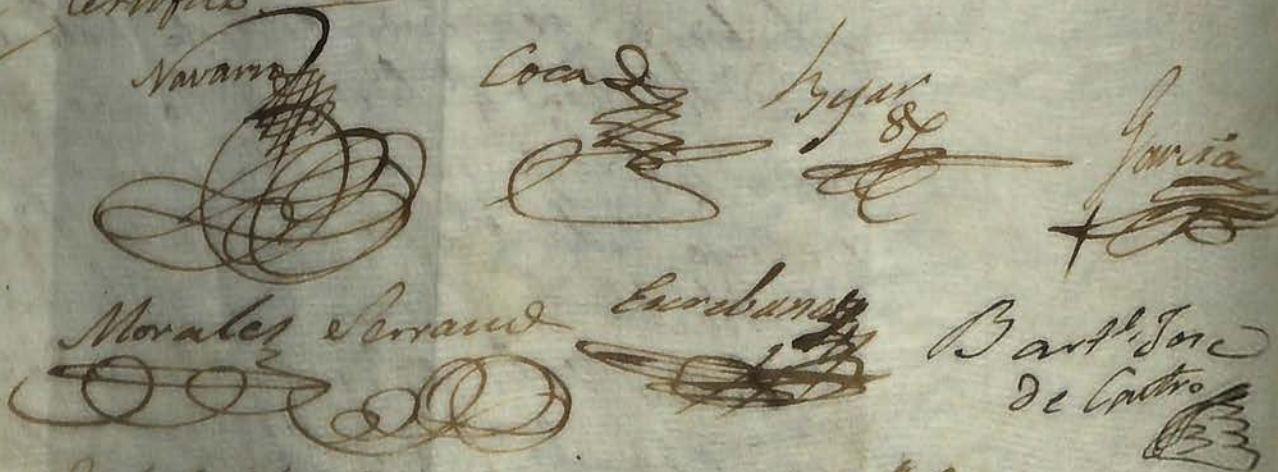 certifica
Navarro Coca Bejar García
Morales Serrano Escribano Bart.e Jose
de Castro